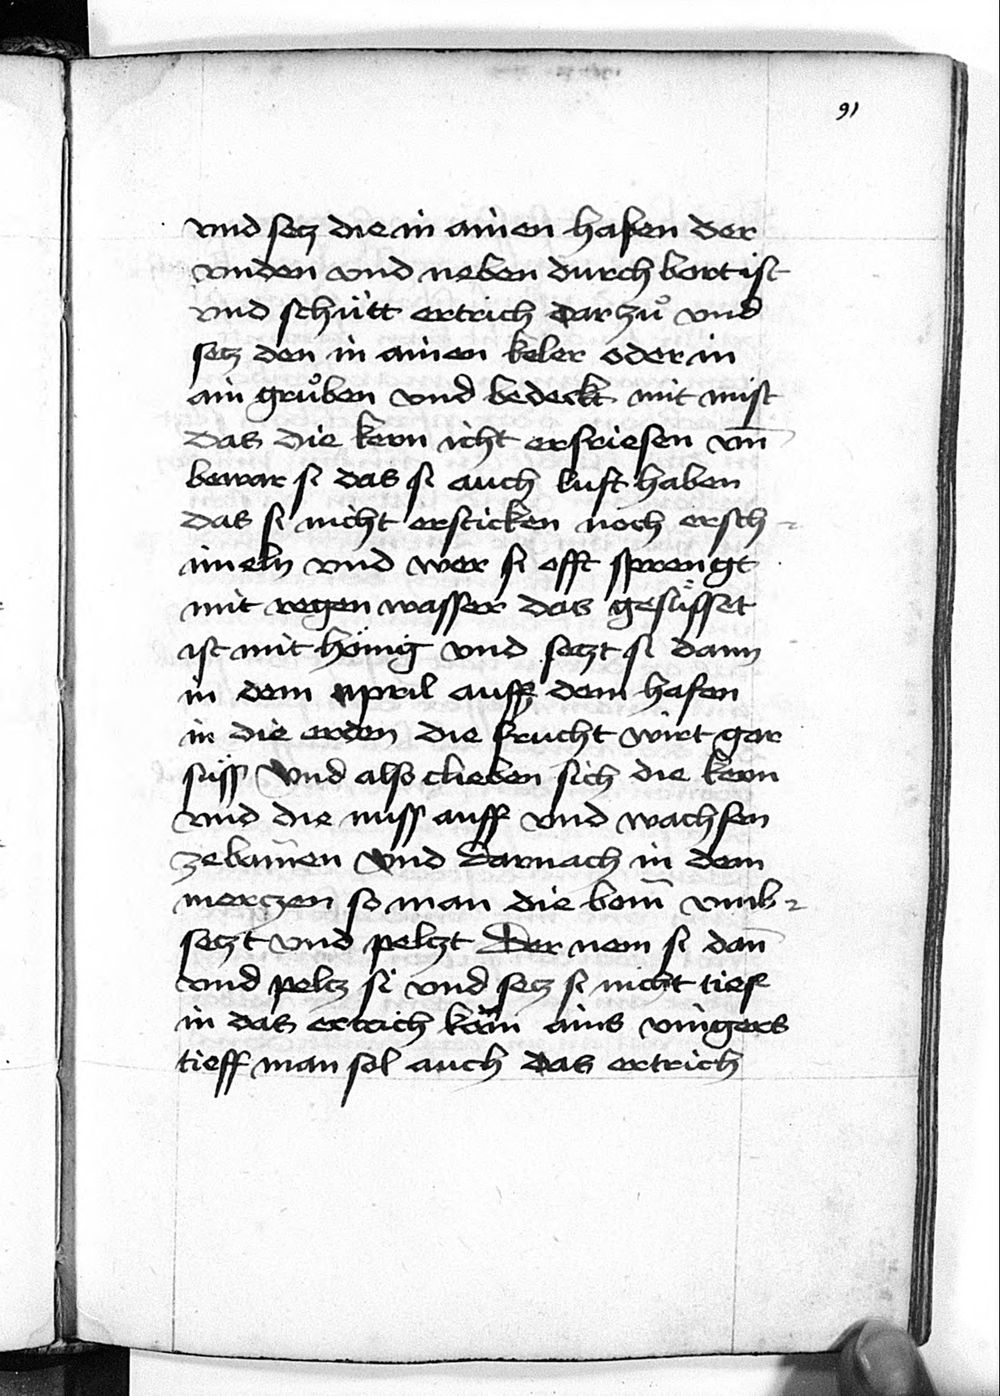 91
vnd secz die in ainen hafen der
vnden vnd neben durch bort ist
vnd schütt ertrich dar zuͦ vnd
secz den in ainen keler oder in
ain gruͦben vnd bedeckt mit mist
das die kern icht erfriesen vn̄
bewar si das si auch luft haben
das si nicht ersticken noch ersch-
imeln vnd wer si offt sprengt
mit regen wasser das gesüsset
ist mit hönig vnd seczt si dann
in dem april auss dem hafen
in die erden die frucht wirt gar
süss Vnd also clieben sich die kern
vnd die nuss auff vnd wachsen
ze bam̄en Vnd darnach in dem
merczen so man die bom̄ vmb-
seczt vnd pelczt Der nem si dan̄
vnd pelcz si vnd secz si nicht tief
in das ertrich köm ains vingers
tieff man sol auch das ertrich